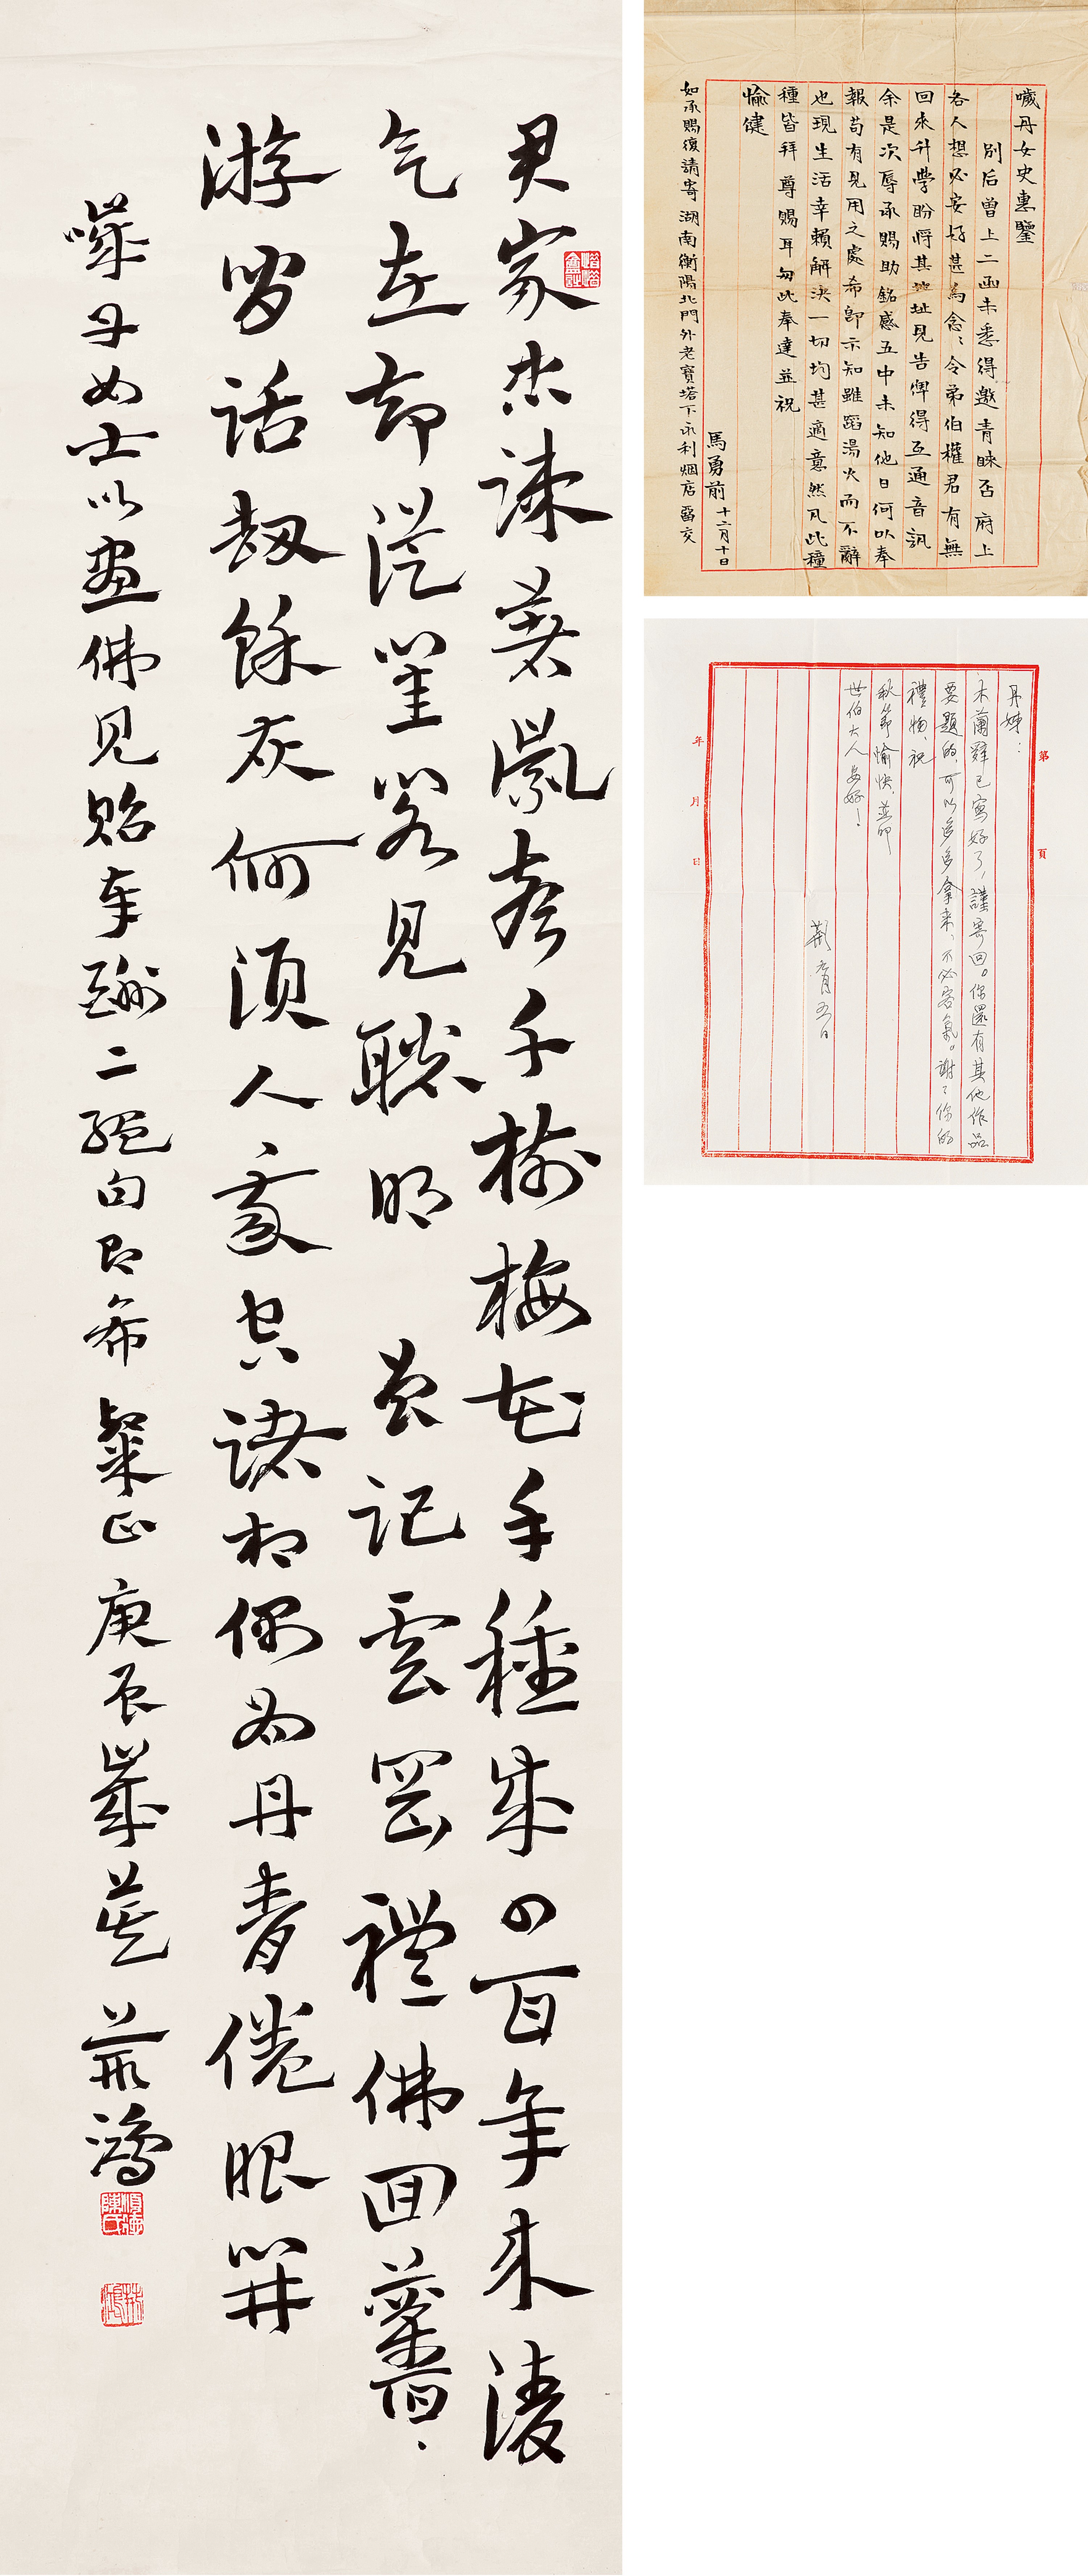 君家本諫暮風奇千樹梅花手種
成四百年來淩
气在却從畫裏見聰明 曾記雲岡禮佛回薔
游留話劫餘灰何須人我空諸相偶為丹青倦眼開
噦丹女士以畫佛見貽奉酬二絕句即希粲正 庚辰歲莫 荊鴻
噦丹女史惠鑒
別后曾上二函未悉得邀青睞否府上
各人想必安好甚為念、令弟伯權君有無
回來升學盼將其址見告俾得互通音訊
余是次辱承賜助銘感五中未知他日何以奉
報苟有見用之處希即示知雖蹈湯火而不辭
也現生活幸賴解決一切均甚適意然凡此種
種皆拜尊賜耳匆此奉達並祝
愉健
馬勇前 十二月十日
如承賜復請寄湖南衡陽北門外老寶塔下永利烟店留交
第 頁
丹姊：
木蘭辞已寫好了，謹寄回。你還有其他作品
要題的，可以多多拿來，不必客氣。謝々你的
禮物、祝
秋節愉快，並叩
世伯大人安好！
荊 五日
年 月 日